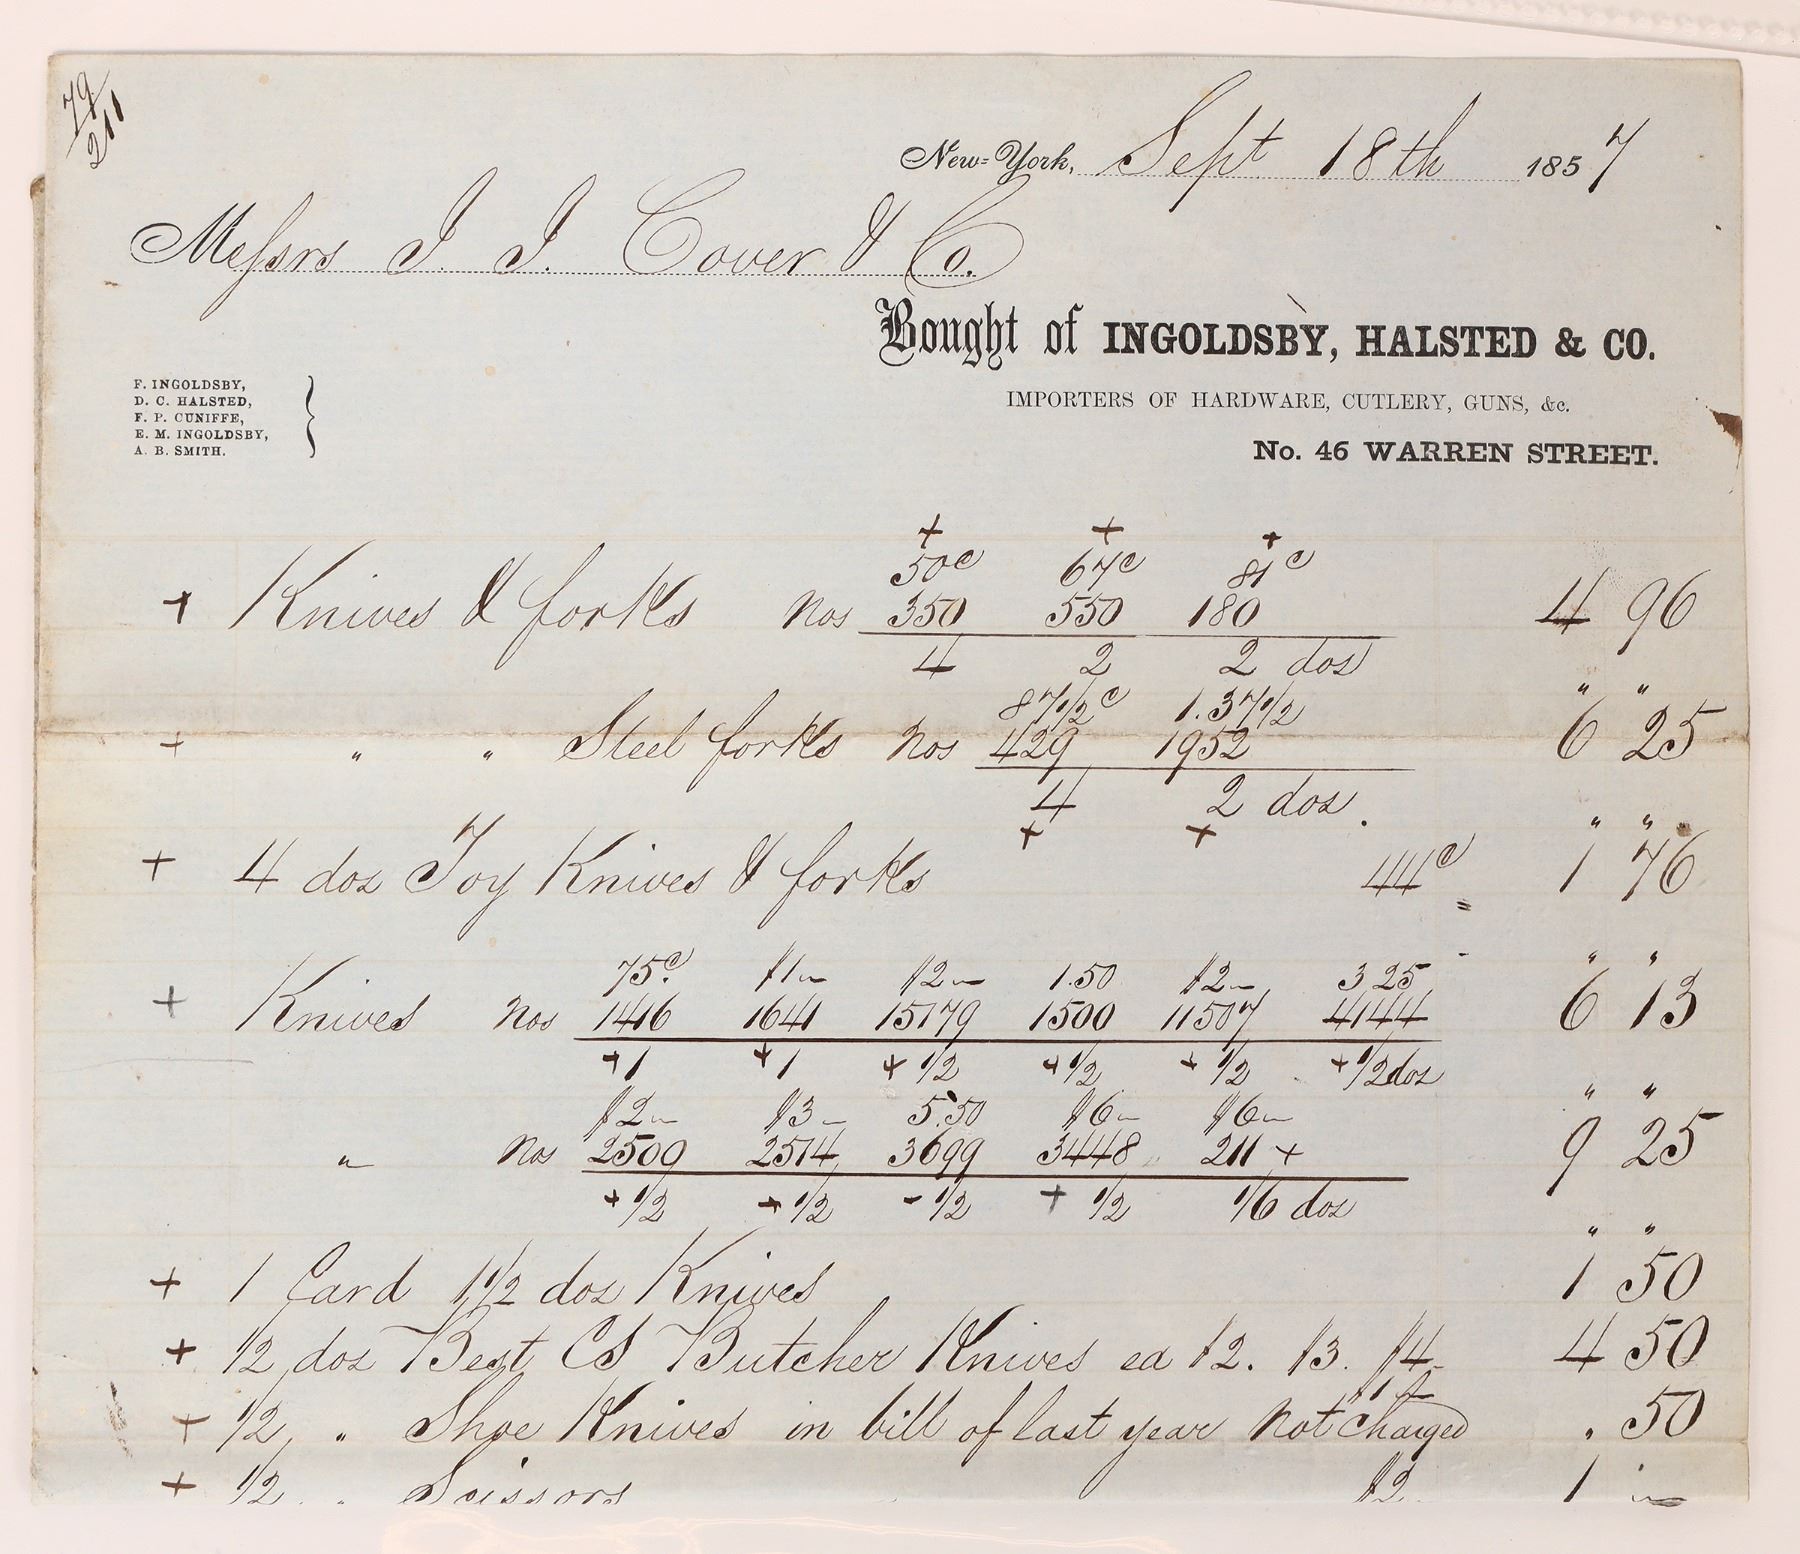 79
211
New-York, Sept 18th 1857
Messrs J. J. Cover & Co.
Bought of INGOLDSBY, HALSTED & CO.
IMPORTERS OF HARDWARE, CUTLERY, GUNS, &c.
No. 46 WARREN STREET.
F. INGOLDSBY,
D. C. HALSTED,
F. P. CUNIFFE,
E. M. INGOLDSBY,
A. B. SMITH.
+ + +
50c 67c 81c
+ Knives & forks nos 350 550 180 4 96
4 2 2 doz
87 1/2c 1.37 1/2 " "
+ " " Steel forks nos 429 1952 6 25
4 2 doz.
+ + " "
+ 4 doz Toy Knives & forks 44c 1 76
75c $1— $2— 1.50 $2— 3 25 " "
+ Knives nos 1416 1641 15179 1500 11507 4144 6 13
+1 +1 +1/2 +1/2 +1/2 +1/2 doz
$2— $3— 5.50 $6— $6— " "
" nos 2509 2514 3699 3448 211 + 9 25
+1/2 +1/2 -1/2 + 1/2 1/6 doz
" "
+ 1 Card 1 1/2 doz Knives 1 50
+ 1/2 doz Best CS Butcher Knives ea $2. $3. $4— 4 50
+ 1/2 " Shoe Knives in bill of last year not charged . 50
+ 1/2 " Scissors $2 1 —